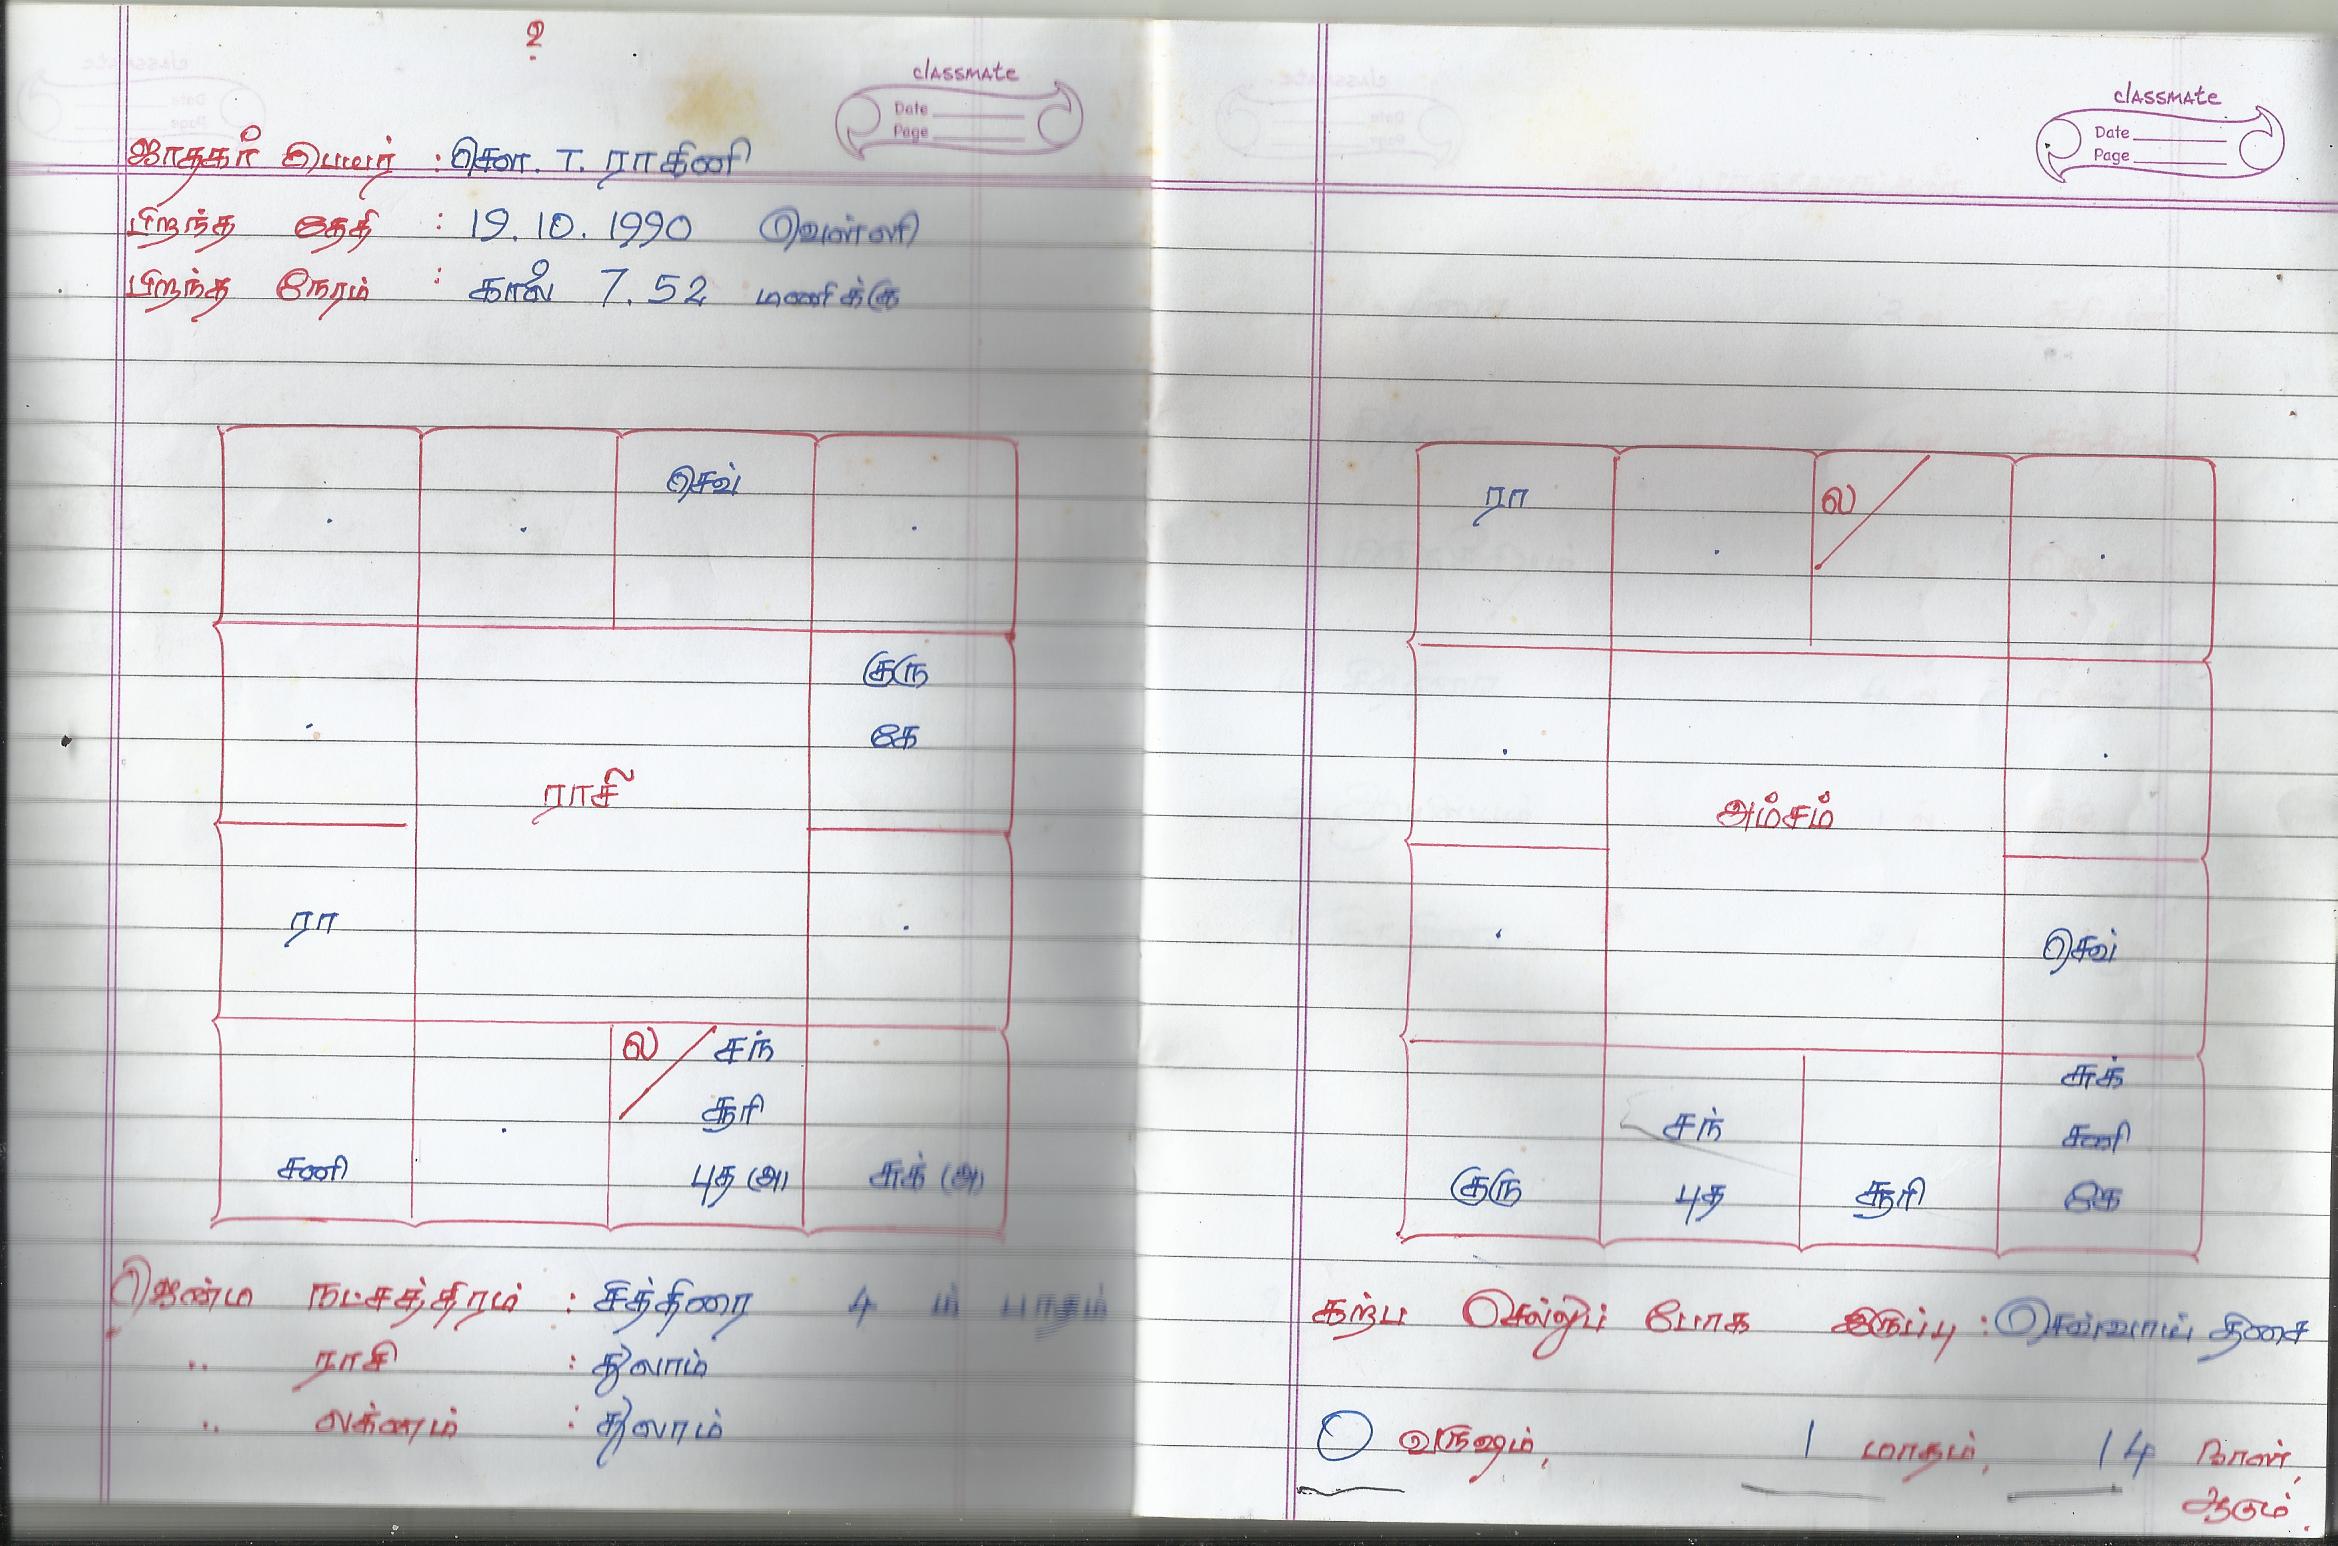 உ
classmate
Date
Page
ஜாதகர் பெயர் : சௌ. T. ராகினி
பிறந்த தேதி : 19.10.1990 வெள்ளி
பிறந்த நேரம் : காலை 7.52 மணிக்கு
செவ்
குரு
கே
ராசி
ரா
ல சந்
சூரி
சனி புத (அ) சுக் (அ)
ஜென்ம நட்சத்திரம் : சித்திரை 4 ம் பாதம்
,, ராசி : துலாம்
,, லக்னம் : துலாம்
classmate
Date
Page
ரா ல
அம்சம்
செவ்
சுக்
சந் சனி
குரு புத சூரி கே
கற்ப செல்லுப் போக இருப்பு : செவ்வாய் திசை
0 வருஷம், 1 மாதம், 14 நாள்,
ஆகும்.